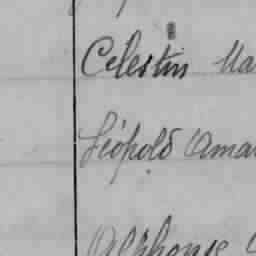 Celestin Ma
Léopold Ama
Alphonse